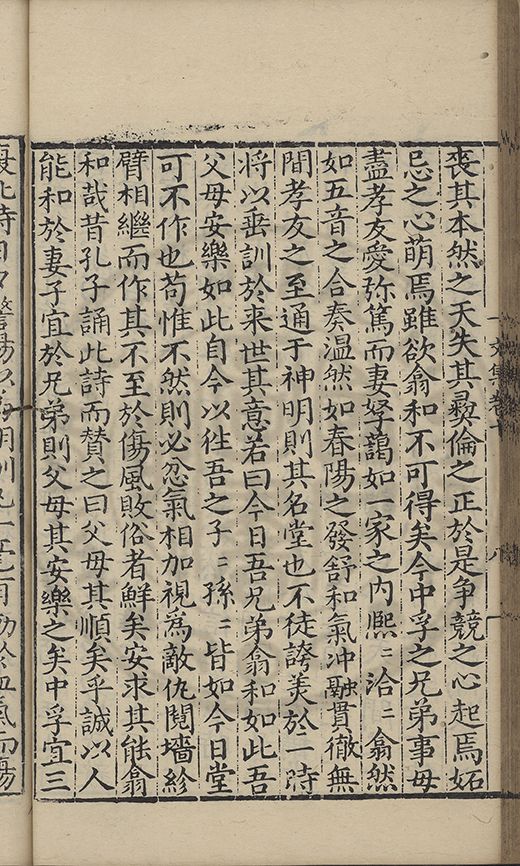 喪其本然之天失其彜倫之正於是争競之心起焉妬
忌之心萌焉雖欲翕和不可得矣今中孚之兄弟事母
盡孝友愛弥篤而妻孥藹如一家之内熈〻洽〻翕然
如五音之合奏温然如春陽之發舒和氣冲融貫徹無
間孝友之至通于神明則其名堂也不徒誇羙於一時
将以垂訓於来世其意若曰今日吾兄弟翕和如此吾
父母安樂如此自今以徃吾之子〻孫〻皆如今日堂
可不作也苟惟不然則必忿氣相加視為敵仇䦧墻紾
臂相繼而作其不至於傷風敗俗者鮮矣安求其能翕
和哉昔孔子誦此詩而賛之曰父母其順矣乎誠以人
能和於妻子宜於兄弟則父母其安樂之矣中孚宜三